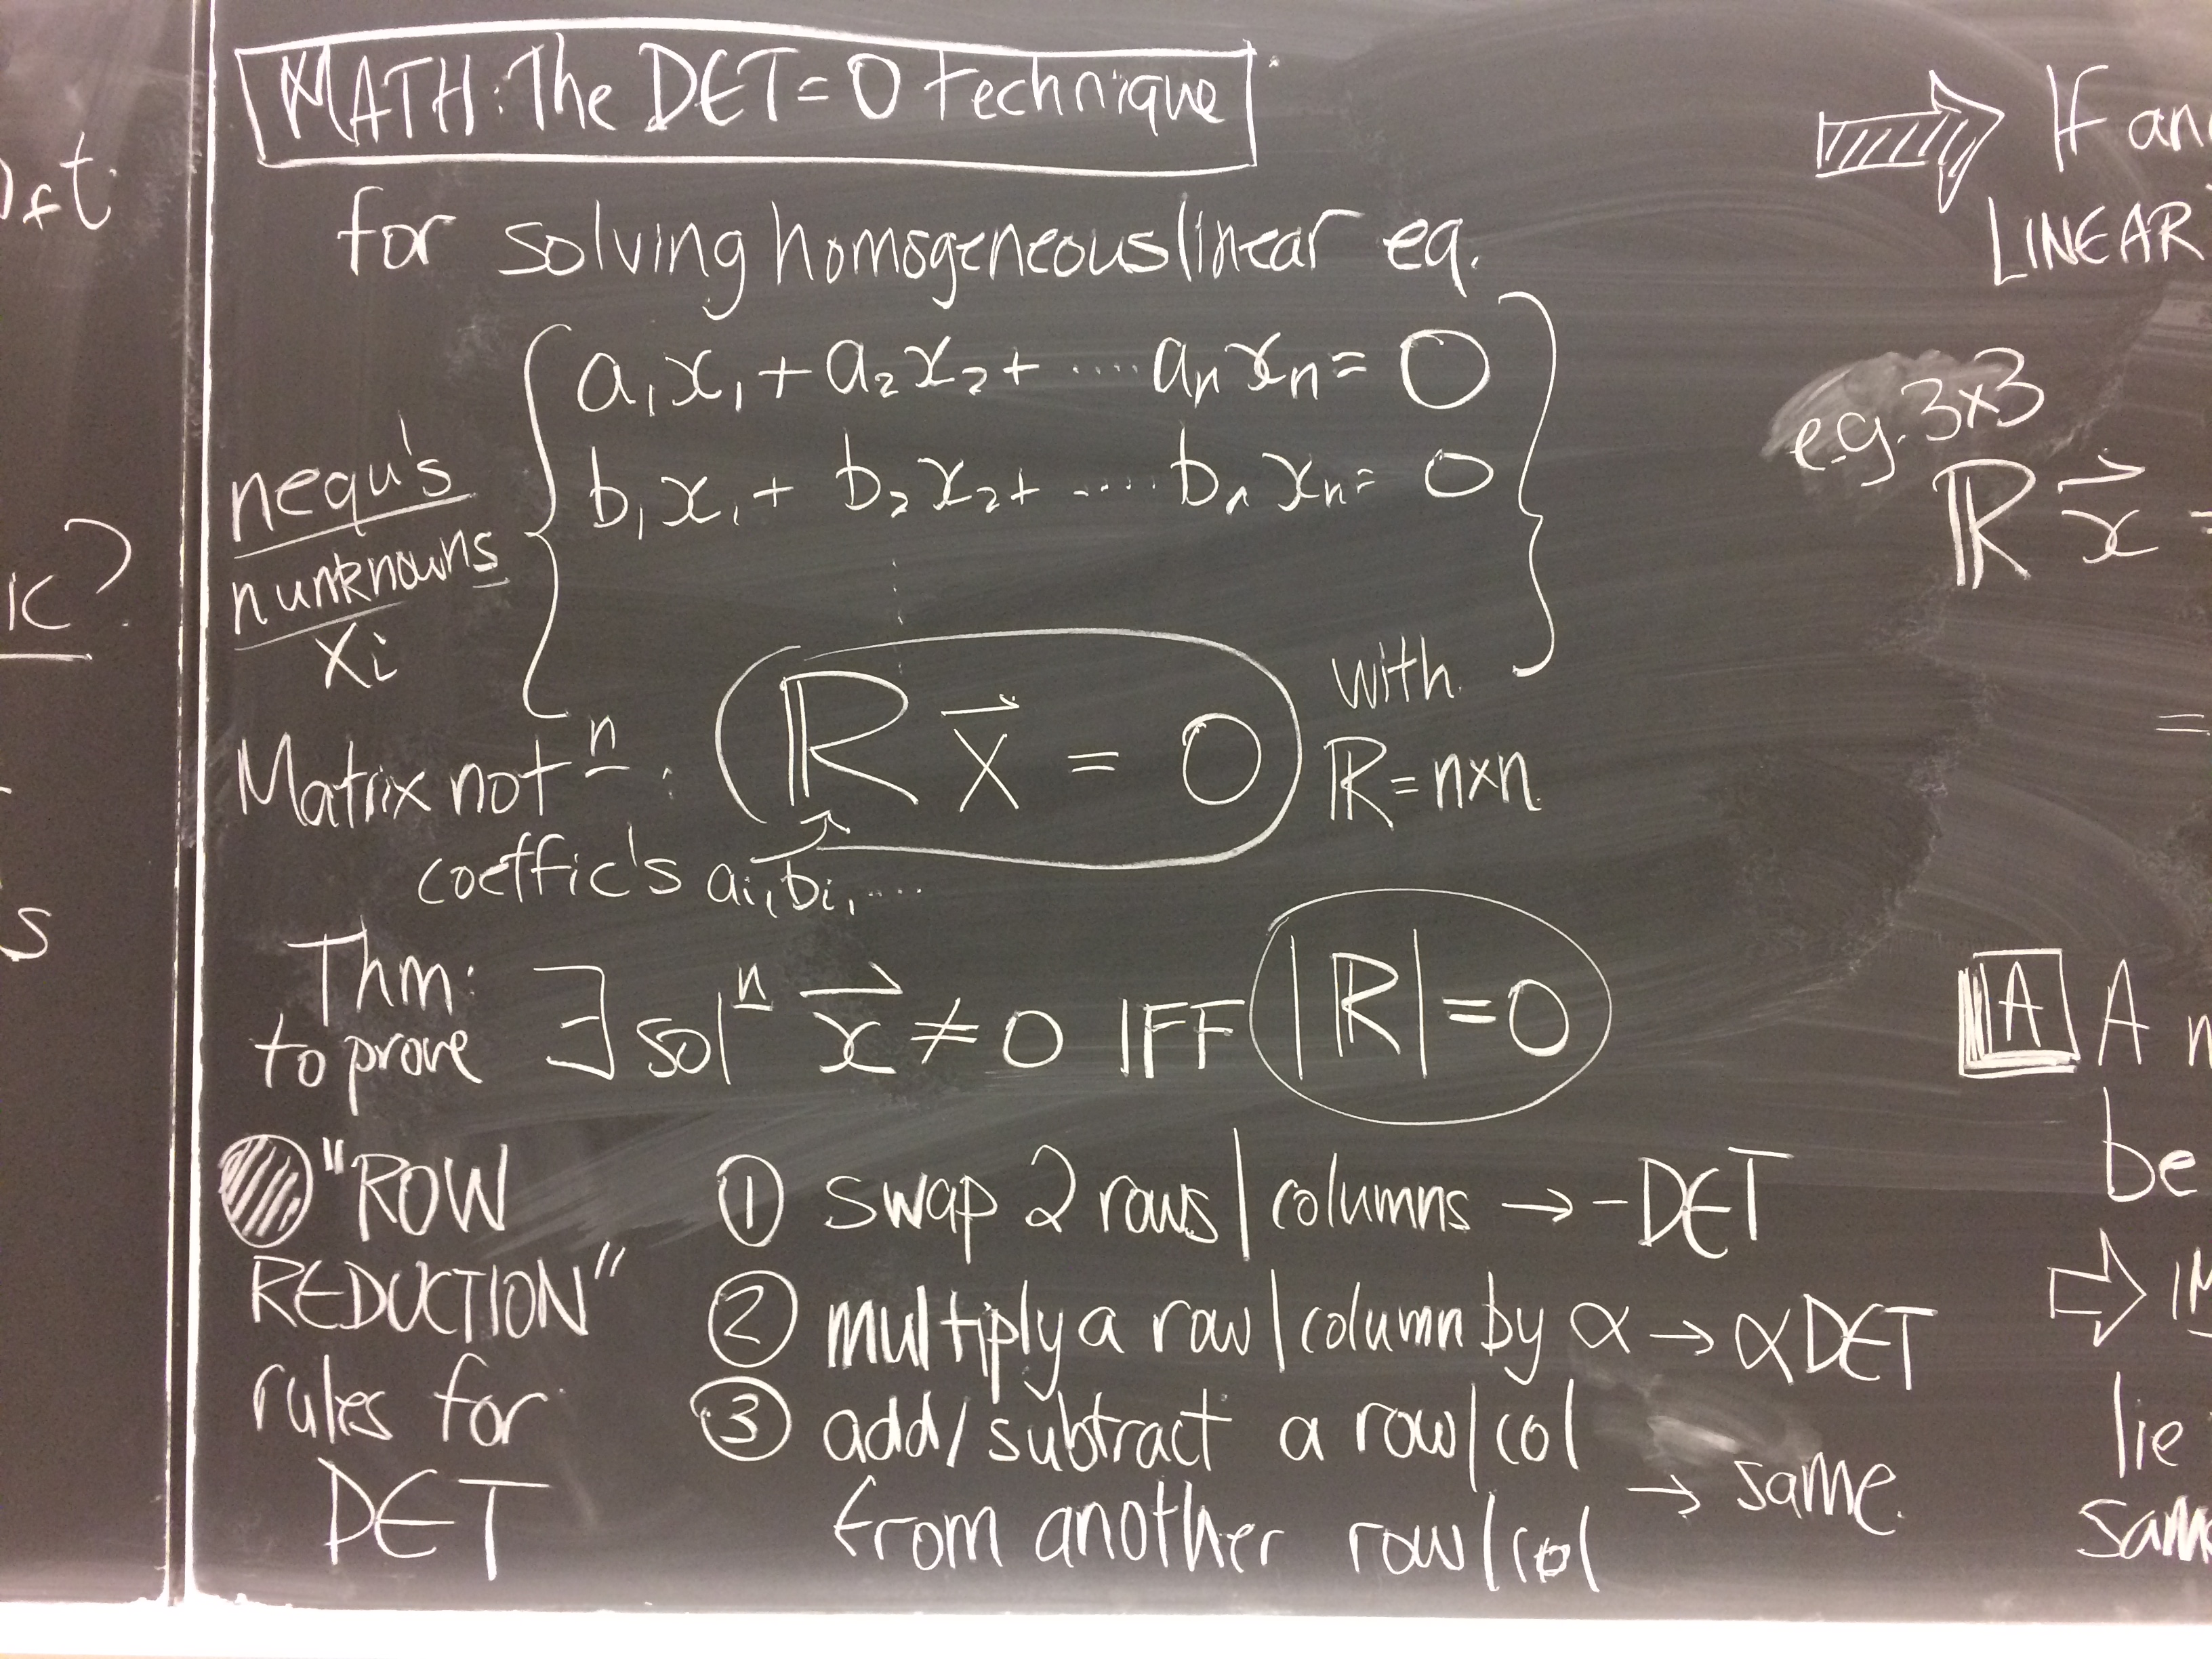 MATH: The DET = 0 technique
for solving homogeneous linear eq.
a₁x₁ + a₂x₂ + ..... aₙxₙ = 0
b₁x₁ + b₂x₂ + ..... bₙxₙ = 0
n equ's
n unknowns
xi
Matrix notⁿ: ℝ x⃗ = 0 with
ℝ = n×n
coeffic's ai, bi, ....
Thm: to prove ∃ solⁿ x⃗ ≠ 0 IFF |ℝ| = 0
"ROW
REDUCTION"
rules for
DET
① swap 2 rows/columns → -DET
② multiply a row/column by α → αDET
③ add/subtract a row/col
from another row/col → same.
If an
LINEAR
e.g. 3×3
ℝ x⃗ =
=
A A
be
lie
sam
K?
s